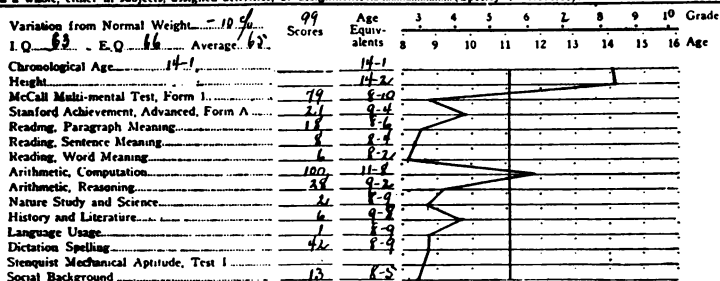 Variation from Normal Weight - 10 % 99 Scores Age Equivalents 3 4 5 6 7 8 9 10 Grade
I. Q. 63 E. Q. 66 Average 65 8 9 10 11 12 13 14 15 16 Age
Chronological Age 14-1 14-1
Height 14-2
McCall Multi-mental Test, Form 1 79 8-10
Stanford Achievement, Advanced, Form A 21 9-4
Reading, Paragraph Meaning 18 8-6
Reading, Sentence Meaning 8 8-4
Reading, Word Meaning 6 8-2
Arithmetic, Computation 100 11-8
Arithmetic, Reasoning 28 9-2
Nature Study and Science 2 8-9
History and Literature 6 9-8
Language Usage 1 8-9
Dictation Spelling 42 8-9
Stenquist Mechanical Aptitude, Test 1
Social Background 13 8-5